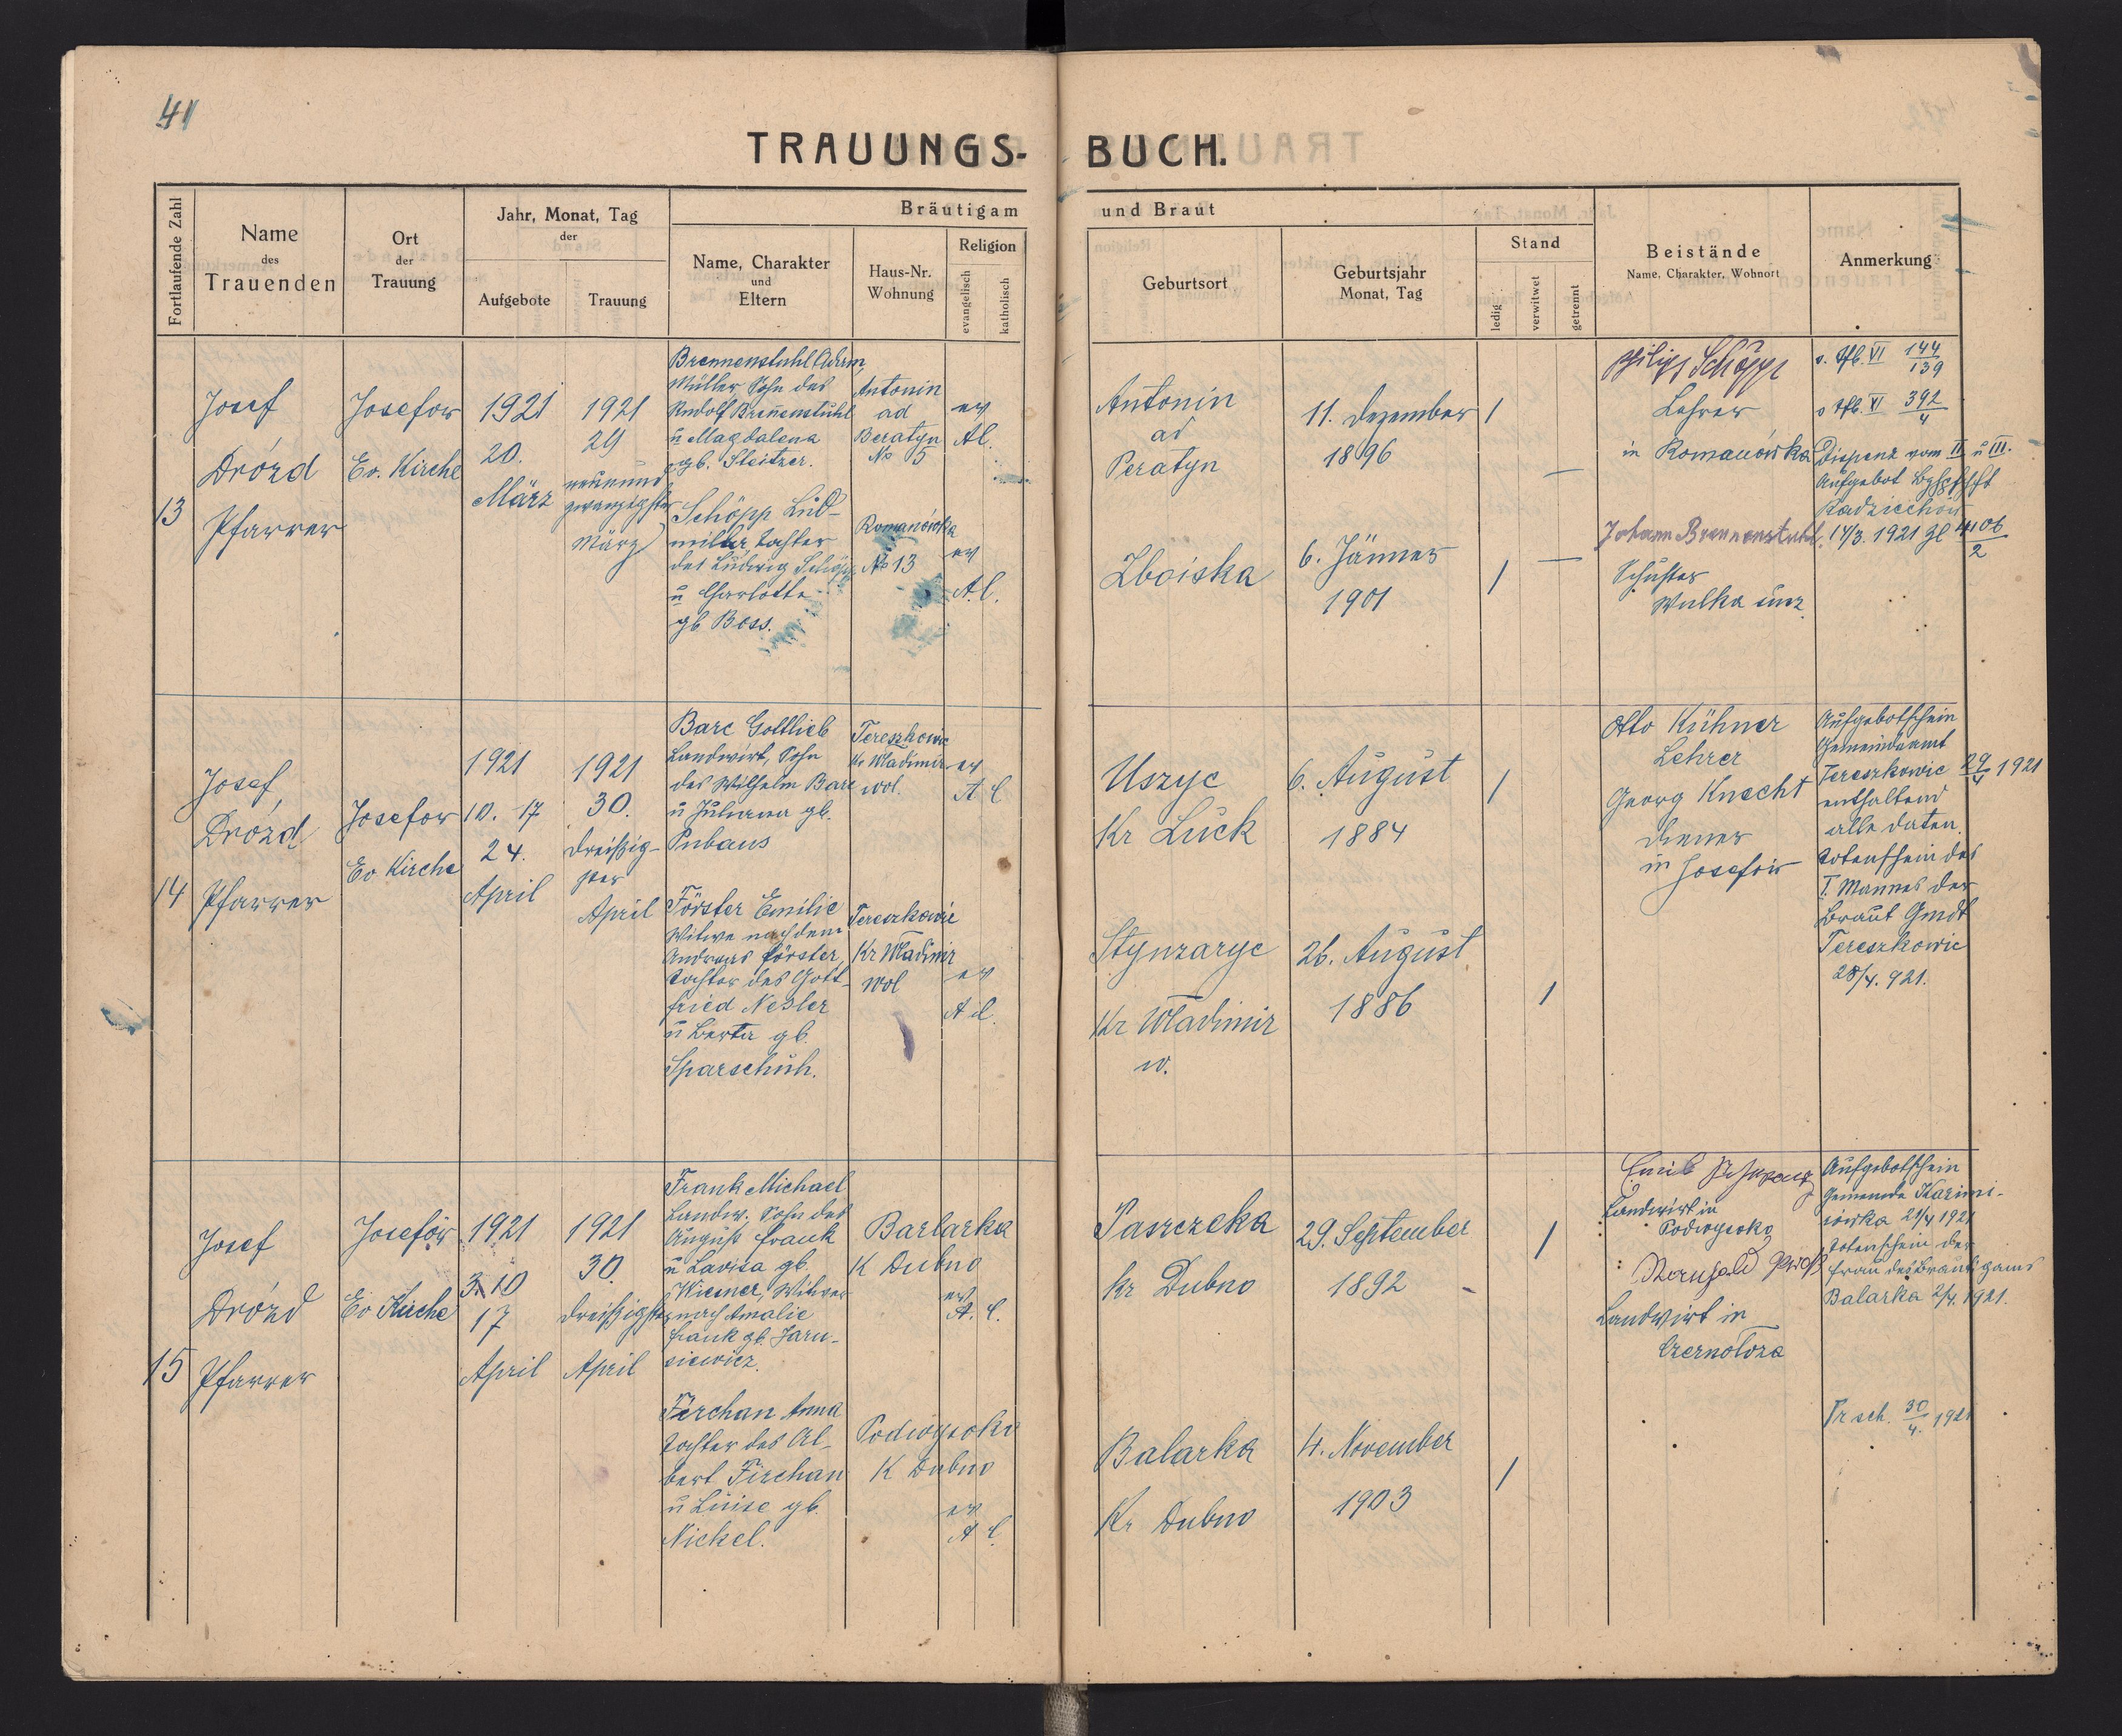 41
TRAUUNGS-BUCH.
Fortlaufende Zahl
Name
des
Trauenden
Ort
der
Trauung
Jahr, Monat, Tag
der
Aufgebote
Trauung
Bräutigam und Braut
Name, Charakter
und
Eltern
Haus-Nr.
Wohnung
Religion
evangelisch
katholisch
Geburtsort
Geburtsjahr
Monat, Tag
Stand
ledig
verwitwet
getrennt
Beistände
Name, Charakter, Wohnort
Anmerkung
13
Josef
Drózd
Pfarrer
Josefow
Ev. Kirche
1921
20.
März
1921
29
neunund
zwanzigster
März
Brennenstuhl
Müller Sohn des
Rudolf Brennenstuhl
u Magdalena
gb. Steitzer.
Antonin
ad
Beratyn
No 5
ev
A.C.
Schöpp Lud-
milla Tochter
des Ludwig Schöpp
u Charlotte
gb Boss.
Romanówka
No 13
ev
A.C.
Antonin
ad
Peratyn
11. Dezember
1896
1
Zboiska
6. Jänner
1901
1
Philipp Schöpp
Lehrer
in Romanówka
Johann Brennenstuhl
Schuster
Wulka
s. Tfb. VI 144/139
s Tfb. VI 392/4
Dispenz vom II u III.
Aufgebot
Radziechów
14/3. 1921 Zl 4106/2
14
Josef
Drózd
Pfarrer
Josefow
Ev Kirche
1921
10. 17
24.
April
1921
30.
dreißig-
ster
April
Barc Gottlieb
Landwirt, Sohn
des Wilhelm Barc
u Julianna gb.
Pubans
Tereszkowic
Kr Wladimir
wol.
ev
A C
Förster Emilie
Witwe nach dem
Andreas Förster,
Tochter des Gott-
fried Nesler
u Berta gb.
Sparschuh.
Tereszkowic
Kr Wladimir
wol
ev
A C.
Uszyc
Kr Luck
6. August
1884
1
Stynzaryc
Kr Wladimir
w.
26. August
1886
1
Otto Kühner
Lehrer
Georg Knecht
Diener
in Josefów
Aufgebotschein
Gemeindeamt
Tereszkowic 29/4 1921
enthaltend
alle Daten.
Totenschein des
I. Mannes der
Braut Gmdt
Tereszkowic
28/4. 921.
15
Josef
Drózd
Pfarrer
Josefów
Ev Kirche
1921
3. 10
17
April
1921
30.
dreißigster
April
Frank Michael
Landw. Sohn des
August Frank
u Lavisa gb.
Wiesner, Witwer
nach Amalie
Frank gb. Jaru-
siewicz.
Barlarka
K Dubno
ev
A. C.
Firchan Anna
Tochter des Al-
bert Firchan
u Luise gb.
Nickel.
Podwysoko
K Dubno
ev
A C.
Pasrczcka
Kr Dubno
29. September
1892
1
Balarka
Kr Dubno
4. November
1903
1
Emil
Landwirt in
Podwysoko
Landwirt in
Czernoloza
Aufgebotschein
Gemeinde Kazimi-
rówka 21/4 1921
Totenschein der
Frau des Bräutigams
Balarka 2/4. 1921.
Tr sch. 30/4. 1921